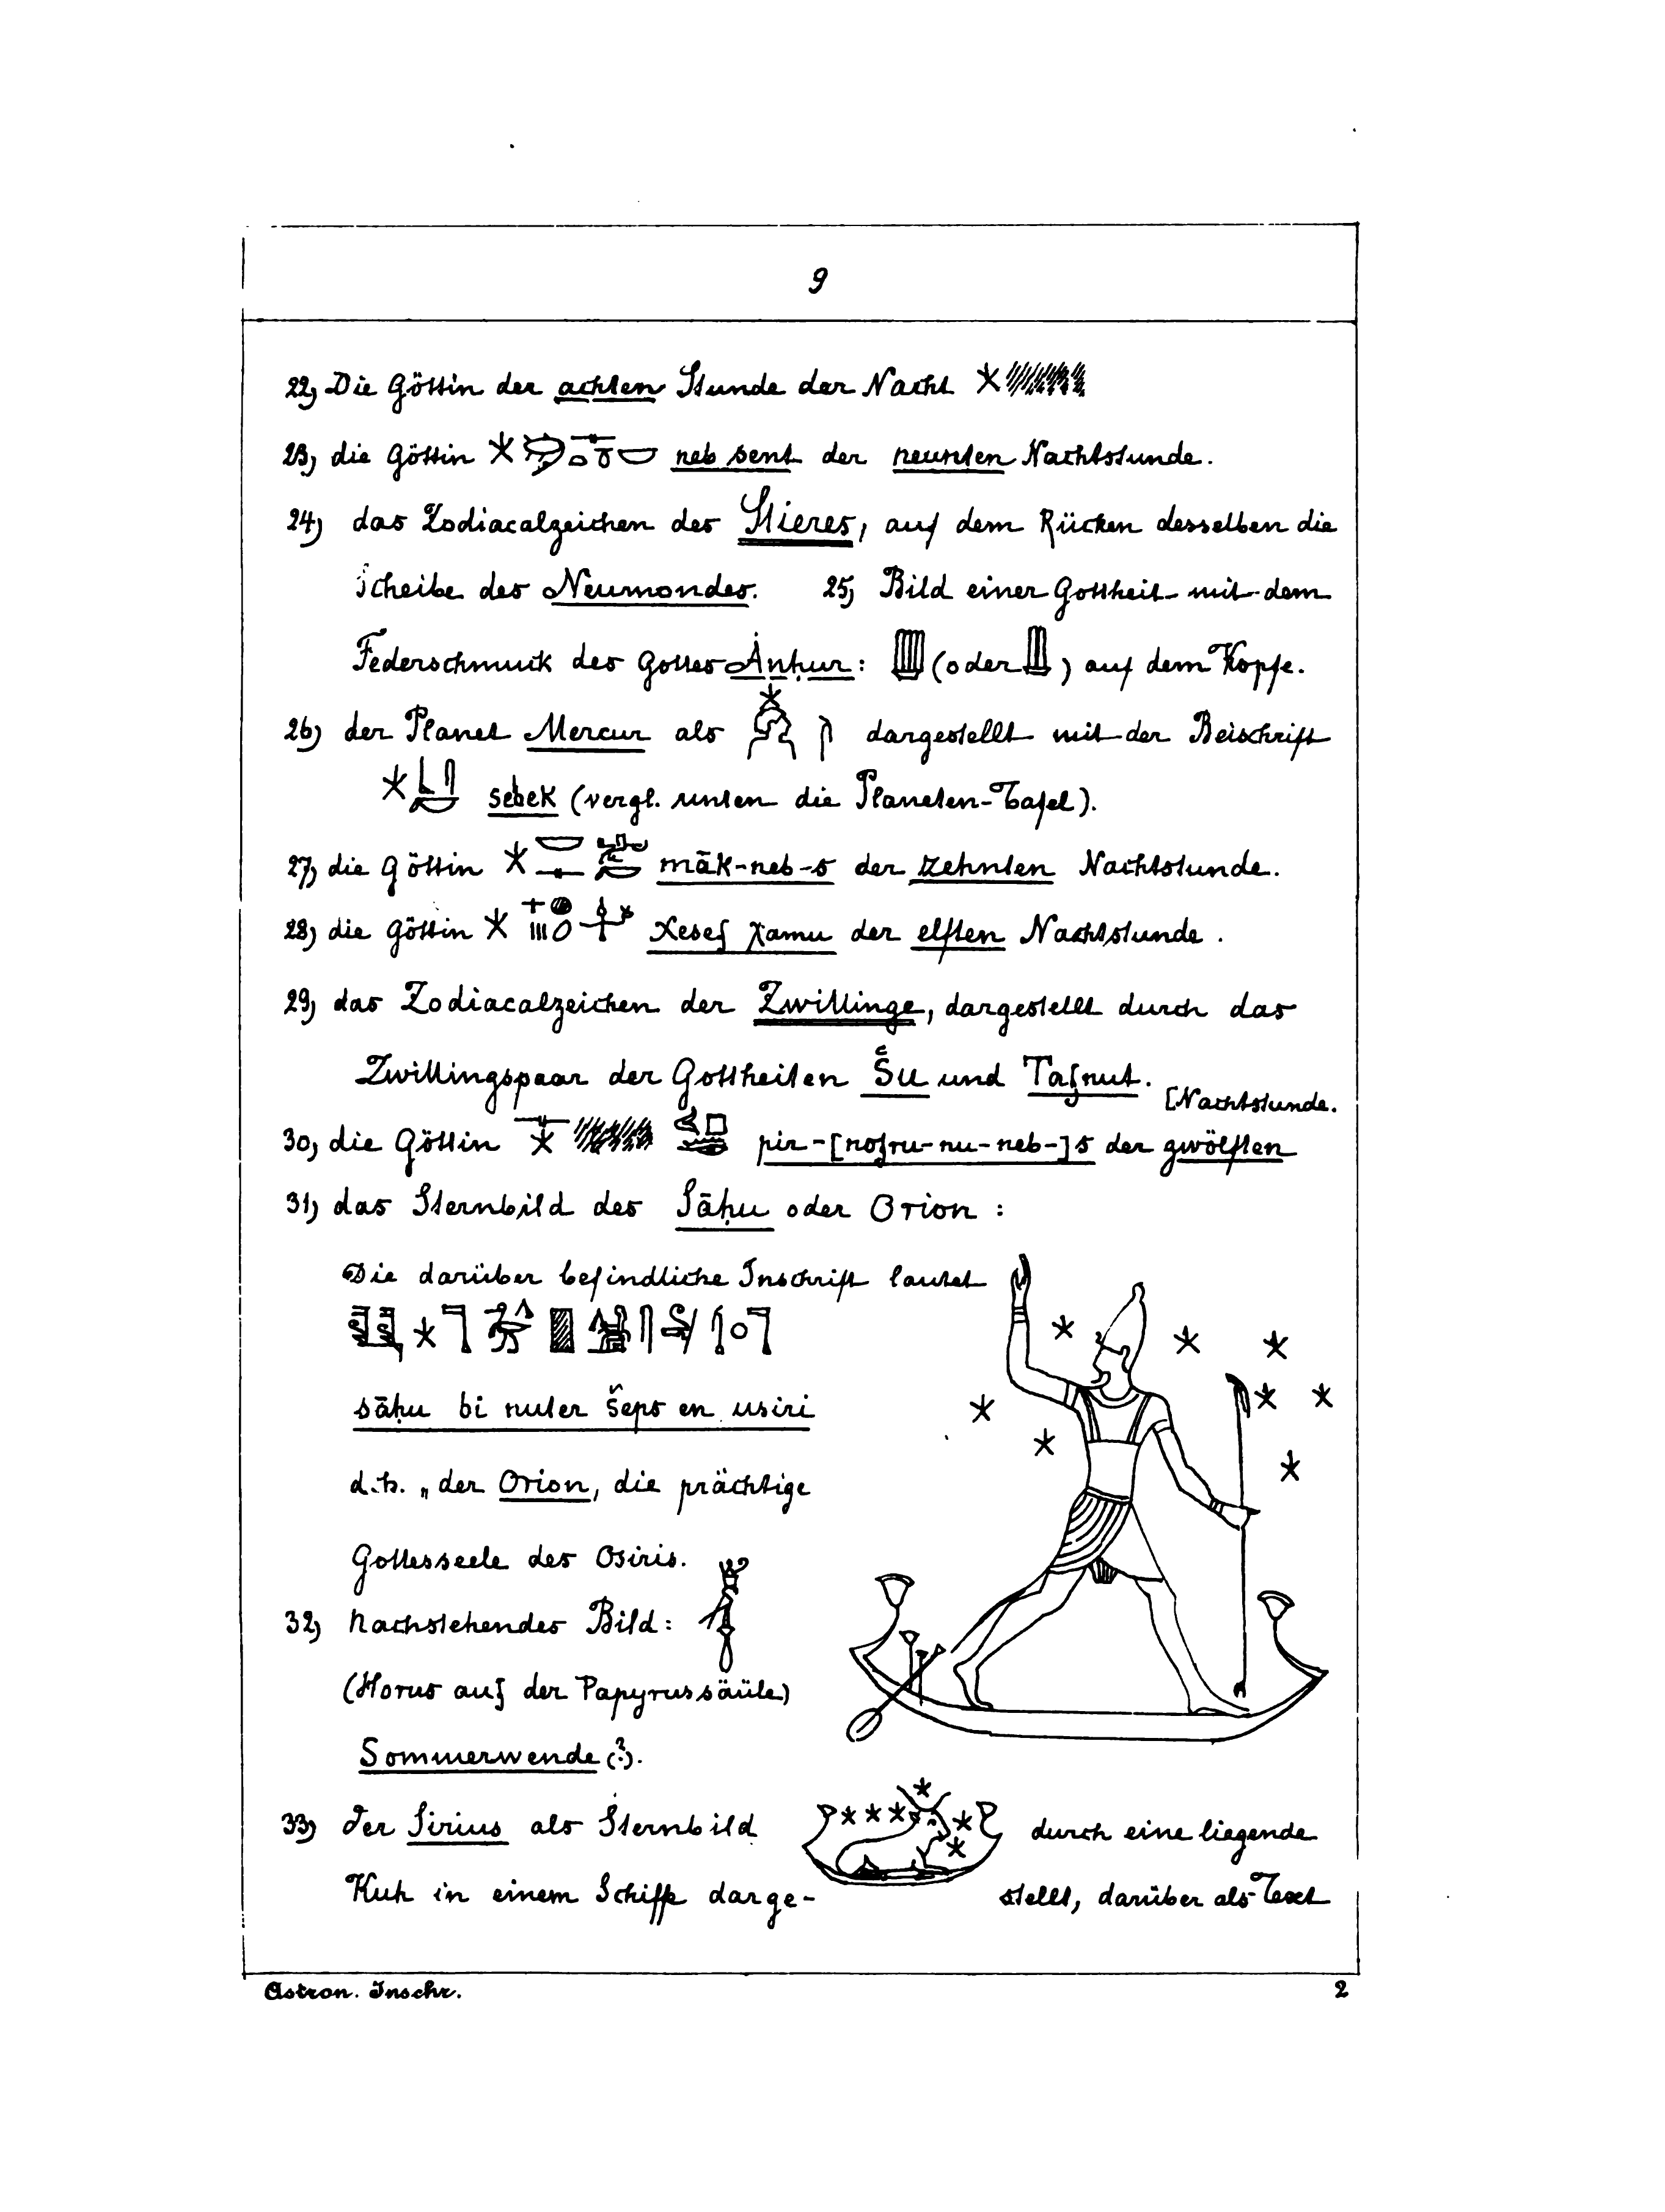 9
22) Die Göttin der achten Stunde der Nacht
23) die Göttin neb sent der neunten Nachtstunde.
24) das Zodiacalzeichen des Stieres, auf dem Rücken desselben die
Scheibe des Neumondes. 25) Bild einer Gottheit mit dem
Federschmuck des Gottes Ȧnḥur: (oder ) auf dem Kopfe.
26) der Planet Mercur als dargestellt mit der Beischrift
sebek (vergl. unten die Planeten-Tafel).
27) die Göttin māk-neb-s der zehnten Nachtstunde.
28) die Göttin χesef χamu der elften Nachtstunde.
29) das Zodiacalzeichen der Zwillinge, dargestellt durch das
Zwillingspaar der Gottheiten Šu und Tafnut.
[Nachtstunde.
30) die Göttin pir-[nofru-nu-neb-]s der zwölften
31) das Sternbild des Sāḥu oder Orion:
Die darüber befindliche Inschrift lautet
sāḥu bi nuter šeps en usiri
d.h. „der Orion, die prächtige
Gottesseele des Osiris.
32) Nachstehendes Bild:
(Horus auf der Papyrussäule)
Sommerwende (?).
33) Der Sirius als Sternbild durch eine liegende
Kuh in einem Schiffe darge- stellt, darüber als Text
Astron. Inschr. 2